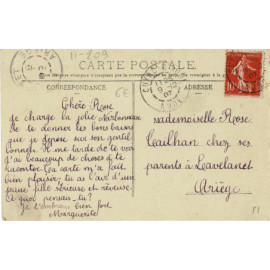 11-209
CARTE POSTALE
CORRESPONDANCE
ADRESSE
Chère Rose
je charge la jolie Narbonnaise
de te donner les bons baisers
que je dépose sur son gentil
Il me tarde de te voir
j'ai beaucoup de choses à te
raconter. Ta carte m'a fait
bien plaisir, tu as l'air d'une
grande fille sérieuse et rêveuse.
à quoi penses-tu?
Je t'embrasse bien fort
Marguerite
Mademoiselle Rose
Cailhau chez ses
parents à Lavelanet
Ariège